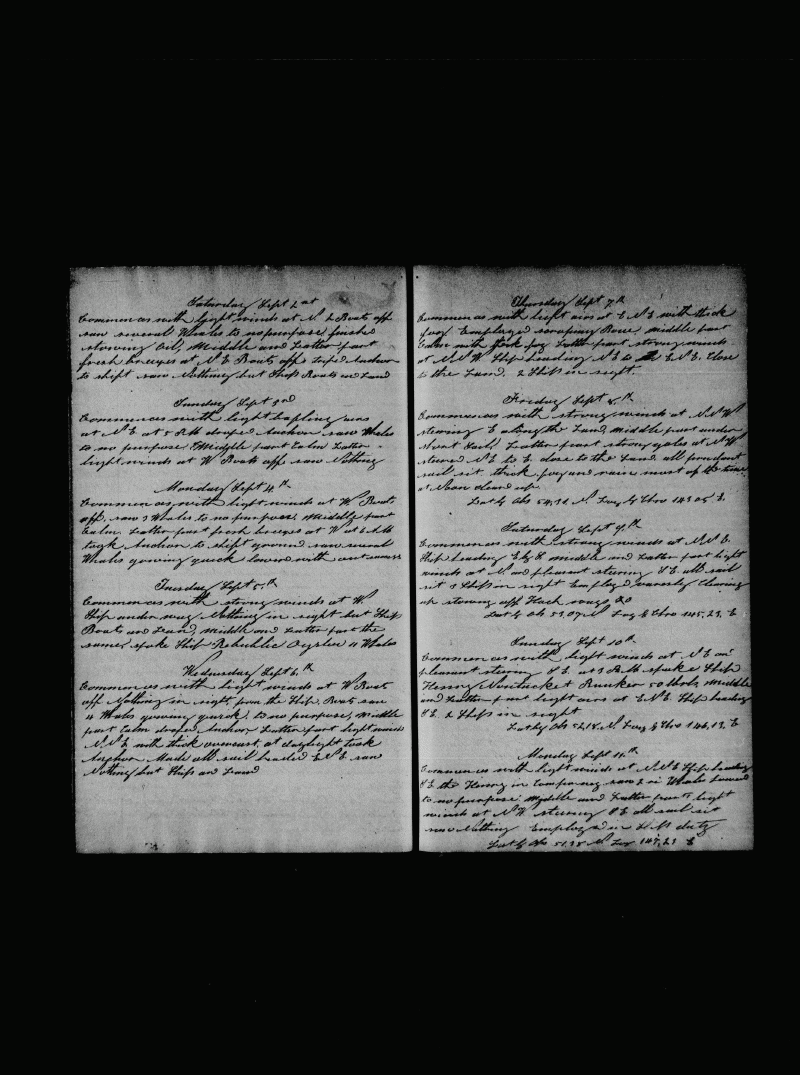 Saturday Sept 2nd
Commences with light winds at N 2 Boats off
saw several Whales to no purpose, finished
stowing Oil, Middle and Latter part
fresh breezes at N E Boats off Anchor
to shift saw Nothing but Ships Boats and Land
Sunday Sept 3rd
Commences with light bafling airs
at N E at 5 P.M droped Anchor saw Whales
to no purpose Middle part Calm Latter
light winds at W Boats off saw Nothing
Monday Sept 4th
Commences with light winds at W Boats
off, saw 3 Whales to no purpose, Middle part
Calm. Latter part fresh breezes at W at 6 A.M
took Anchor to shift ground saw several
Whales gowing quick lowerd with out success
Tuesday Sept 5th
Commences with strong winds at W.
Ship under way Nothing in sight but Ships
Boats and Land, middle and Latter part the
same, spoke Ship Republic 4 Whales
Wednesday Sept 6th
Commences with light winds at W Boats
off Nothing in sight from the Ship. Boats saw
4 Whales gowing quick, to no purpose, Middle
part Calm droped Anchor Latter part light winds
N N E with thick overcast, at daylight took
Anchor Made all sail headed E N E saw
Nothing but Ships and Land
Thursday Sept 7th
Commences with light airs at E N E with thick
fog. Employed scraping Bone, middle part
Calm with thick fog Latter part strong winds
at N N W Ship heading N E to E N E. Close
to the Land. 2 Ships in sight.
Friday Sept 8th
Commences with strong winds at N N W
steering E along the Land, middle part under
short Sail Latter part strong gales at N W
steered N E to E close to the Land all prudent
sail sit thick fog and rain most of the time
at Noon cleard up.
Lat by Obs 54,31 N Long by Chro 143 05 E
Saturday Sept 9th
Commences with strong winds at N N E.
Ship heading E by S middle and Latter part light
winds at N and plesent steering S E all sail
sit 3 Ships in sight Employed variously Clearing
up stowing off &c
Lat by Obs 53,07 N Long by Chro 145,23, E
Sunday Sept 10th
Commences with light winds at N E and
pleasent steering S E. at 3 P.M spoke Ship
Henry Nantucket Bunker 50 bbls Middle
and Latter part light airs at E N E Ship heading
S E. 2 Ships in sight
Lat by Obs 52,18 N Long by Chro 146,13, E
Monday Sept 11th
Commences with light winds at N N E Ship heading
S E the Henry in Company saw 2 Whales lowerd
to no purpose Myddle and Latter parts light
winds at N W steering S E all sail sit
saw Nothing Employed in duty
Lat by Obs 51,38 N Lon 147,23 E